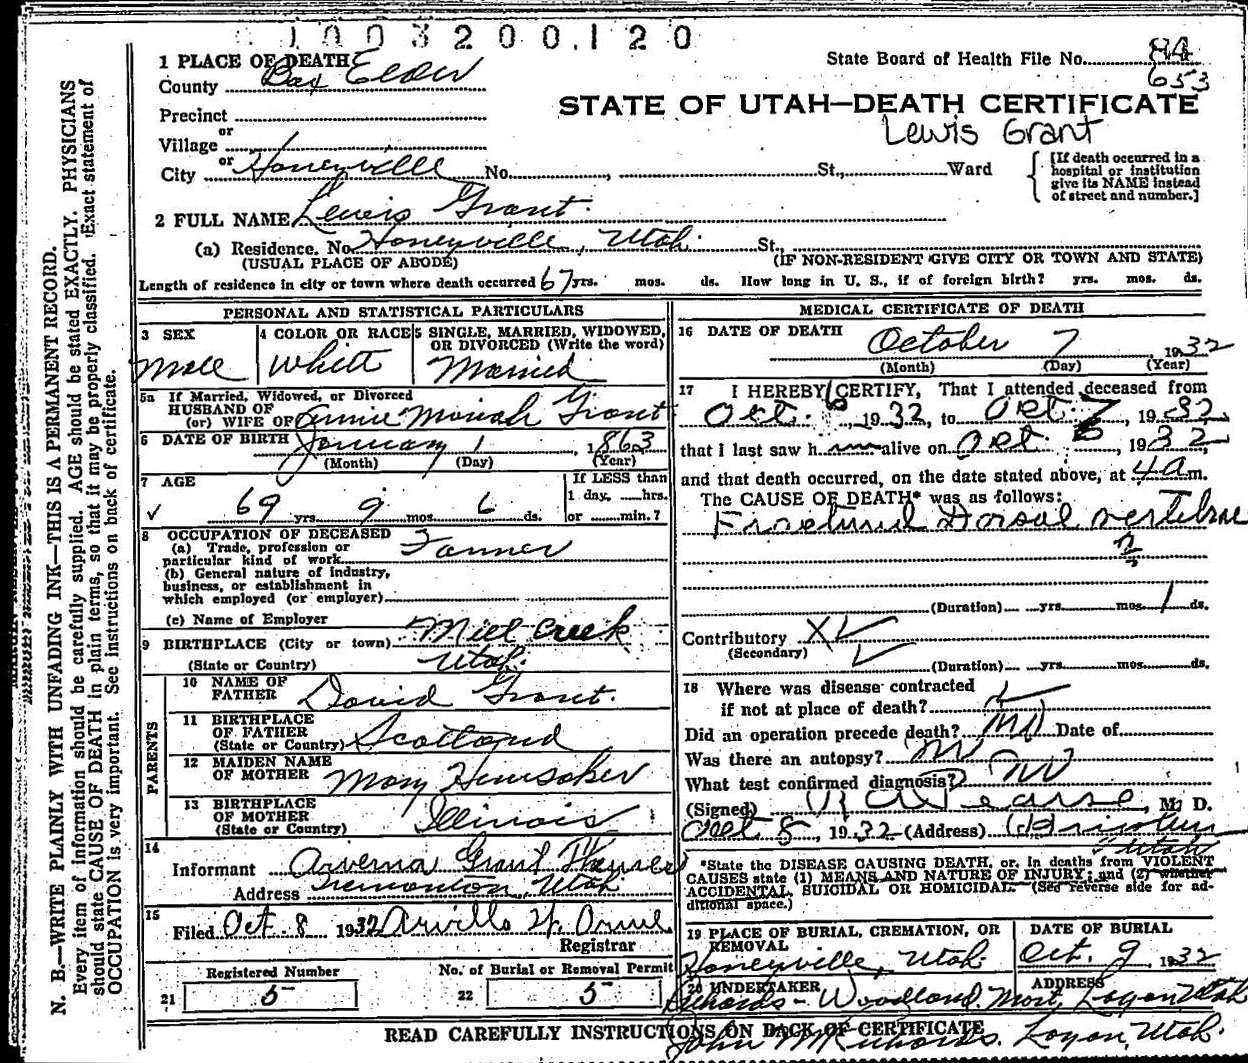 1003200120
1 PLACE OF DEATH
County Box Elder
State Board of Health File No. 84
653
STATE OF UTAH—DEATH CERTIFICATE
Lewis Grant
Precinct
or
Village
or
City Honeyville No. , St., Ward
[If death occurred in a
hospital or institution
give its NAME instead
of street and number.]
2 FULL NAME Lewis Grant.
(a) Residence. No. Honeyville, Utah. St.,
(USUAL PLACE OF ABODE) (IF NON-RESIDENT GIVE CITY OR TOWN AND STATE)
Length of residence in city or town where death occurred 67 yrs. mos. ds. How long in U. S., if of foreign birth? yrs. mos. ds.
PERSONAL AND STATISTICAL PARTICULARS
3 SEX
Male
4 COLOR OR RACE
White
5 SINGLE, MARRIED, WIDOWED,
OR DIVORCED (Write the word)
Married
5a If Married, Widowed, or Divorced
HUSBAND OF
(or) WIFE OF Annie Moriah Grant
6 DATE OF BIRTH January 1, 1863
(Month) (Day) (Year)
7 AGE
69 yrs. 9 mos. 6 ds.
If LESS than
1 day, hrs.
or min.?
8 OCCUPATION OF DECEASED
(a) Trade, profession or
particular kind of work Farmer
(b) General nature of industry,
business, or establishment in
which employed (or employer)
(c) Name of Employer
9 BIRTHPLACE (City or town) Mill Creek
(State or Country) Utah.
PARENTS
10 NAME OF
FATHER David Grant.
11 BIRTHPLACE
OF FATHER
(State or Country) Scotland
12 MAIDEN NAME
OF MOTHER Mary Hunsaker
13 BIRTHPLACE
OF MOTHER
(State or Country) Illinois
14
Informant Arverna Grant
Address Tremonton, Utah
15
Filed Oct. 8 1932
Registrar
21 Registered Number 5
22 No. of Burial or Removal Permit 5
MEDICAL CERTIFICATE OF DEATH
16 DATE OF DEATH
October 7 1932
(Month) (Day) (Year)
17 I HEREBY CERTIFY, That I attended deceased from
Oct. 6, 1932, to Oct. 7, 1932,
that I last saw him alive on Oct 6, 1932,
and that death occurred, on the date stated above, at 4 a m.
The CAUSE OF DEATH* was as follows:
Fractured Dorsal vertebrae
(Duration) yrs. mos. 1 ds.
Contributory
(Secondary)
(Duration) yrs. mos. ds.
18 Where was disease contracted
if not at place of death?
Did an operation precede death? no Date of
Was there an autopsy? no
What test confirmed diagnosis? no
(Signed) , M. D.
Oct 8, 1932 (Address)
Utah
*State the DISEASE CAUSING DEATH, or, in deaths from VIOLENT
CAUSES state (1) MEANS AND NATURE OF INJURY; and (2) whether
ACCIDENTAL, SUICIDAL OR HOMICIDAL. (See reverse side for ad-
ditional space.)
19 PLACE OF BURIAL, CREMATION, OR
REMOVAL
Honeyville, Utah.
DATE OF BURIAL
Oct. 9, 1932
20 UNDERTAKER
Richards-Woodland Mort.
ADDRESS
Logan Utah
READ CAREFULLY INSTRUCTIONS ON BACK OF CERTIFICATE
John W Richards. Logan, Utah.
N. B.—WRITE PLAINLY WITH UNFADING INK—THIS IS A PERMANENT RECORD.
Every item of information should be carefully supplied. AGE should be stated EXACTLY. PHYSICIANS
should state CAUSE OF DEATH in plain terms, so that it may be properly classified. Exact statement of
OCCUPATION is very important. See instructions on back of certificate.